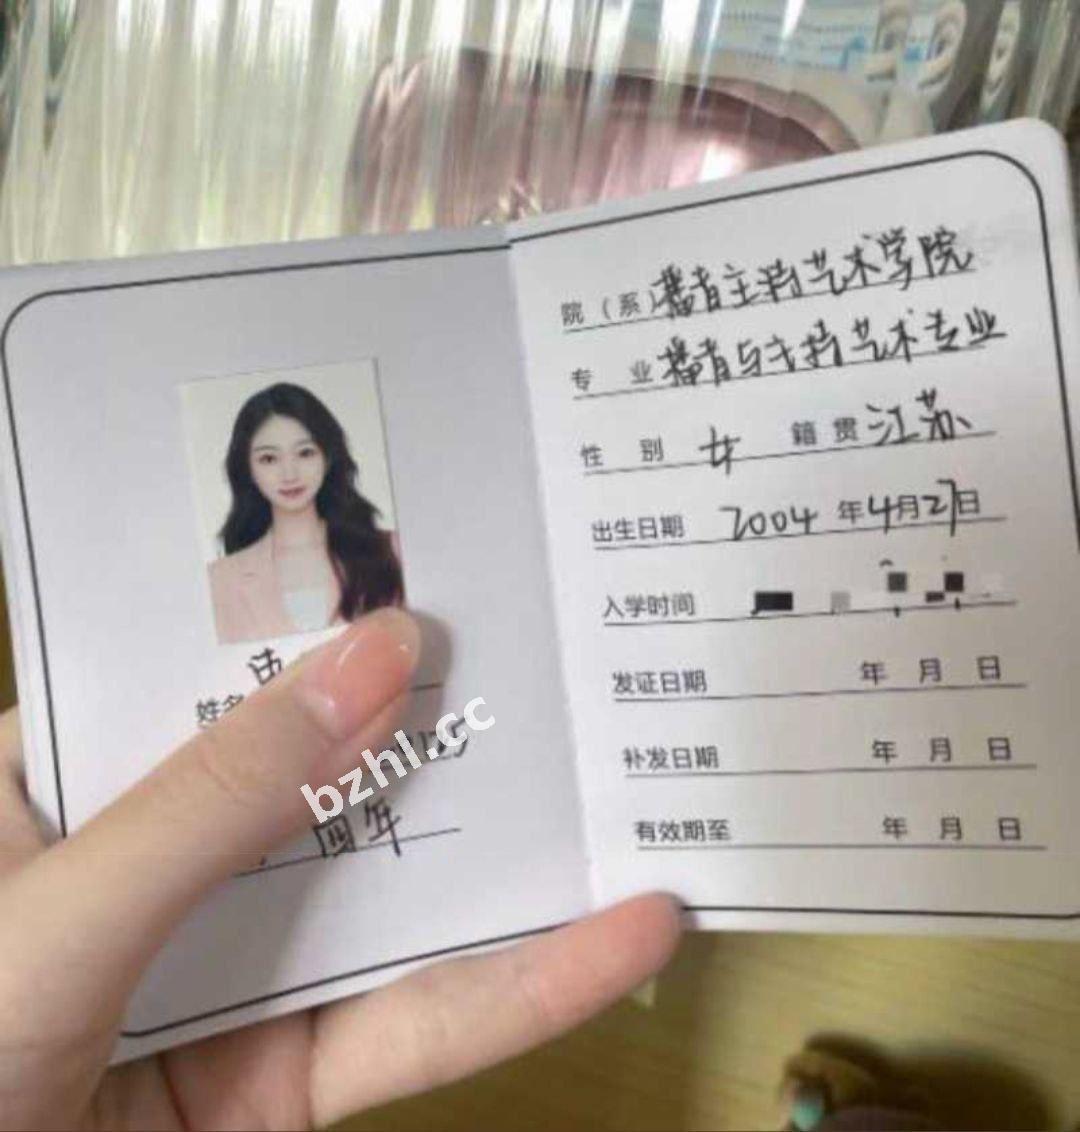 姓名
125
四年
院（系）播音主持艺术学院
专业 播音与主持艺术专业
性别 女 籍贯 江苏
出生日期 2004年4月27日
入学时间
发证日期 年 月 日
补发日期 年 月 日
有效期至 年 月 日
bzhl.cc